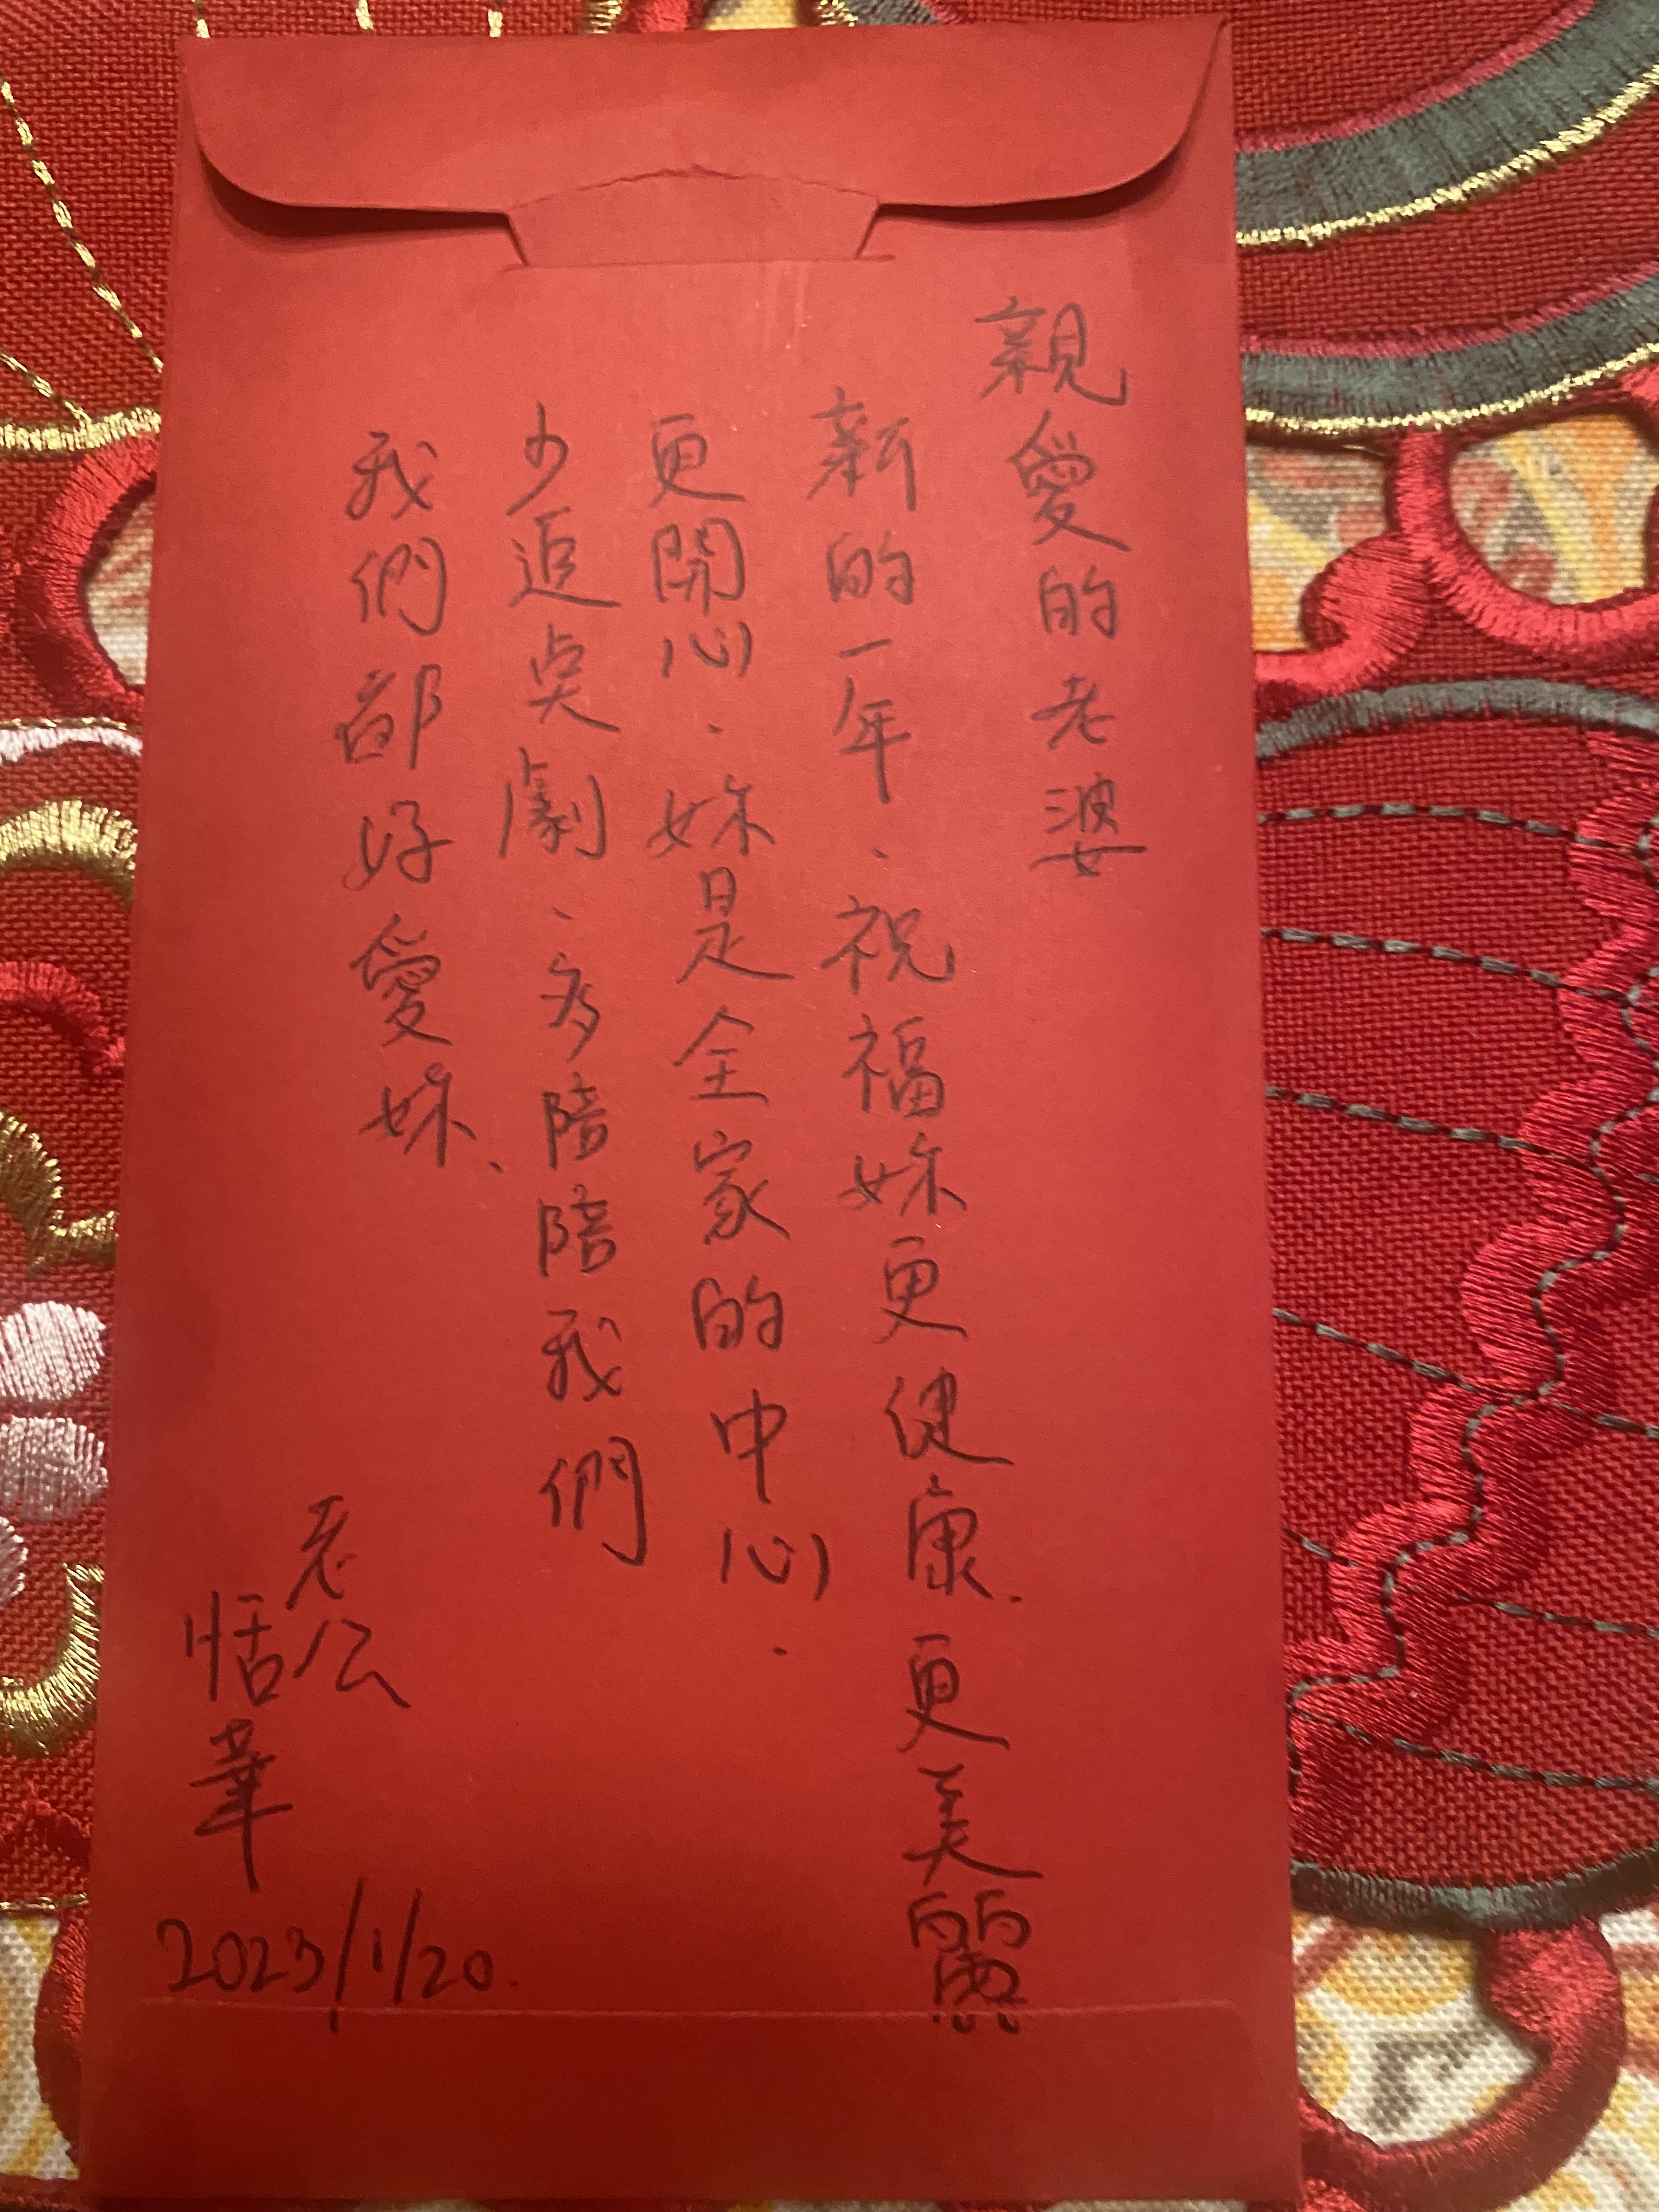 親愛的老婆
新的一年.祝福妳更健康.更美麗
更開心.妳是全家的中心.
少追点劇.多陪陪我們
我們都好愛妳、
老公
恬華
2023/1/20.